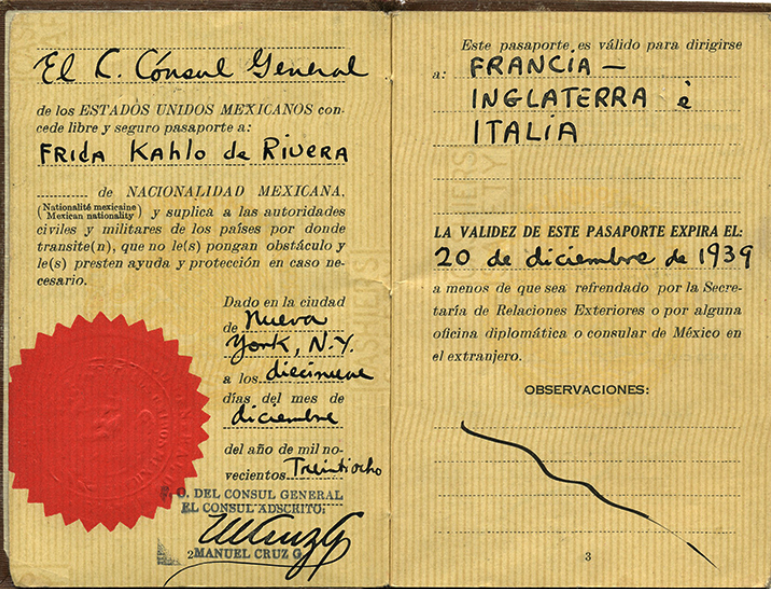 El C. Cónsul General
de los ESTADOS UNIDOS MEXICANOS con-
cede libre y seguro pasaporte a:
FRIDA KAHLO de RIVERA
de NACIONALIDAD MEXICANA,
(Nationalité mexicaine
Mexican nationality) y suplica a las autoridades
civiles y militares de los países por donde
transite(n), que no le(s) pongan obstáculo y
le(s) presten ayuda y protección en caso ne-
cesario.
Dado en la ciudad
de Nueva
York, N.Y.
a los diecinueve
días del mes de
diciembre
del año de mil no-
vecientos Treintiocho
P. O. DEL CONSUL GENERAL
EL CONSUL ADSCRITO;
MCruzG
2 MANUEL CRUZ G.
Este pasaporte es válido para dirigirse
a: FRANCIA —
INGLATERRA è
ITALIA
LA VALIDEZ DE ESTE PASAPORTE EXPIRA EL:
20 de diciembre de 1939
a menos de que sea refrendado por la Secre-
taría de Relaciones Exteriores o por alguna
oficina diplomática o consular de México en
el extranjero.
OBSERVACIONES:
3